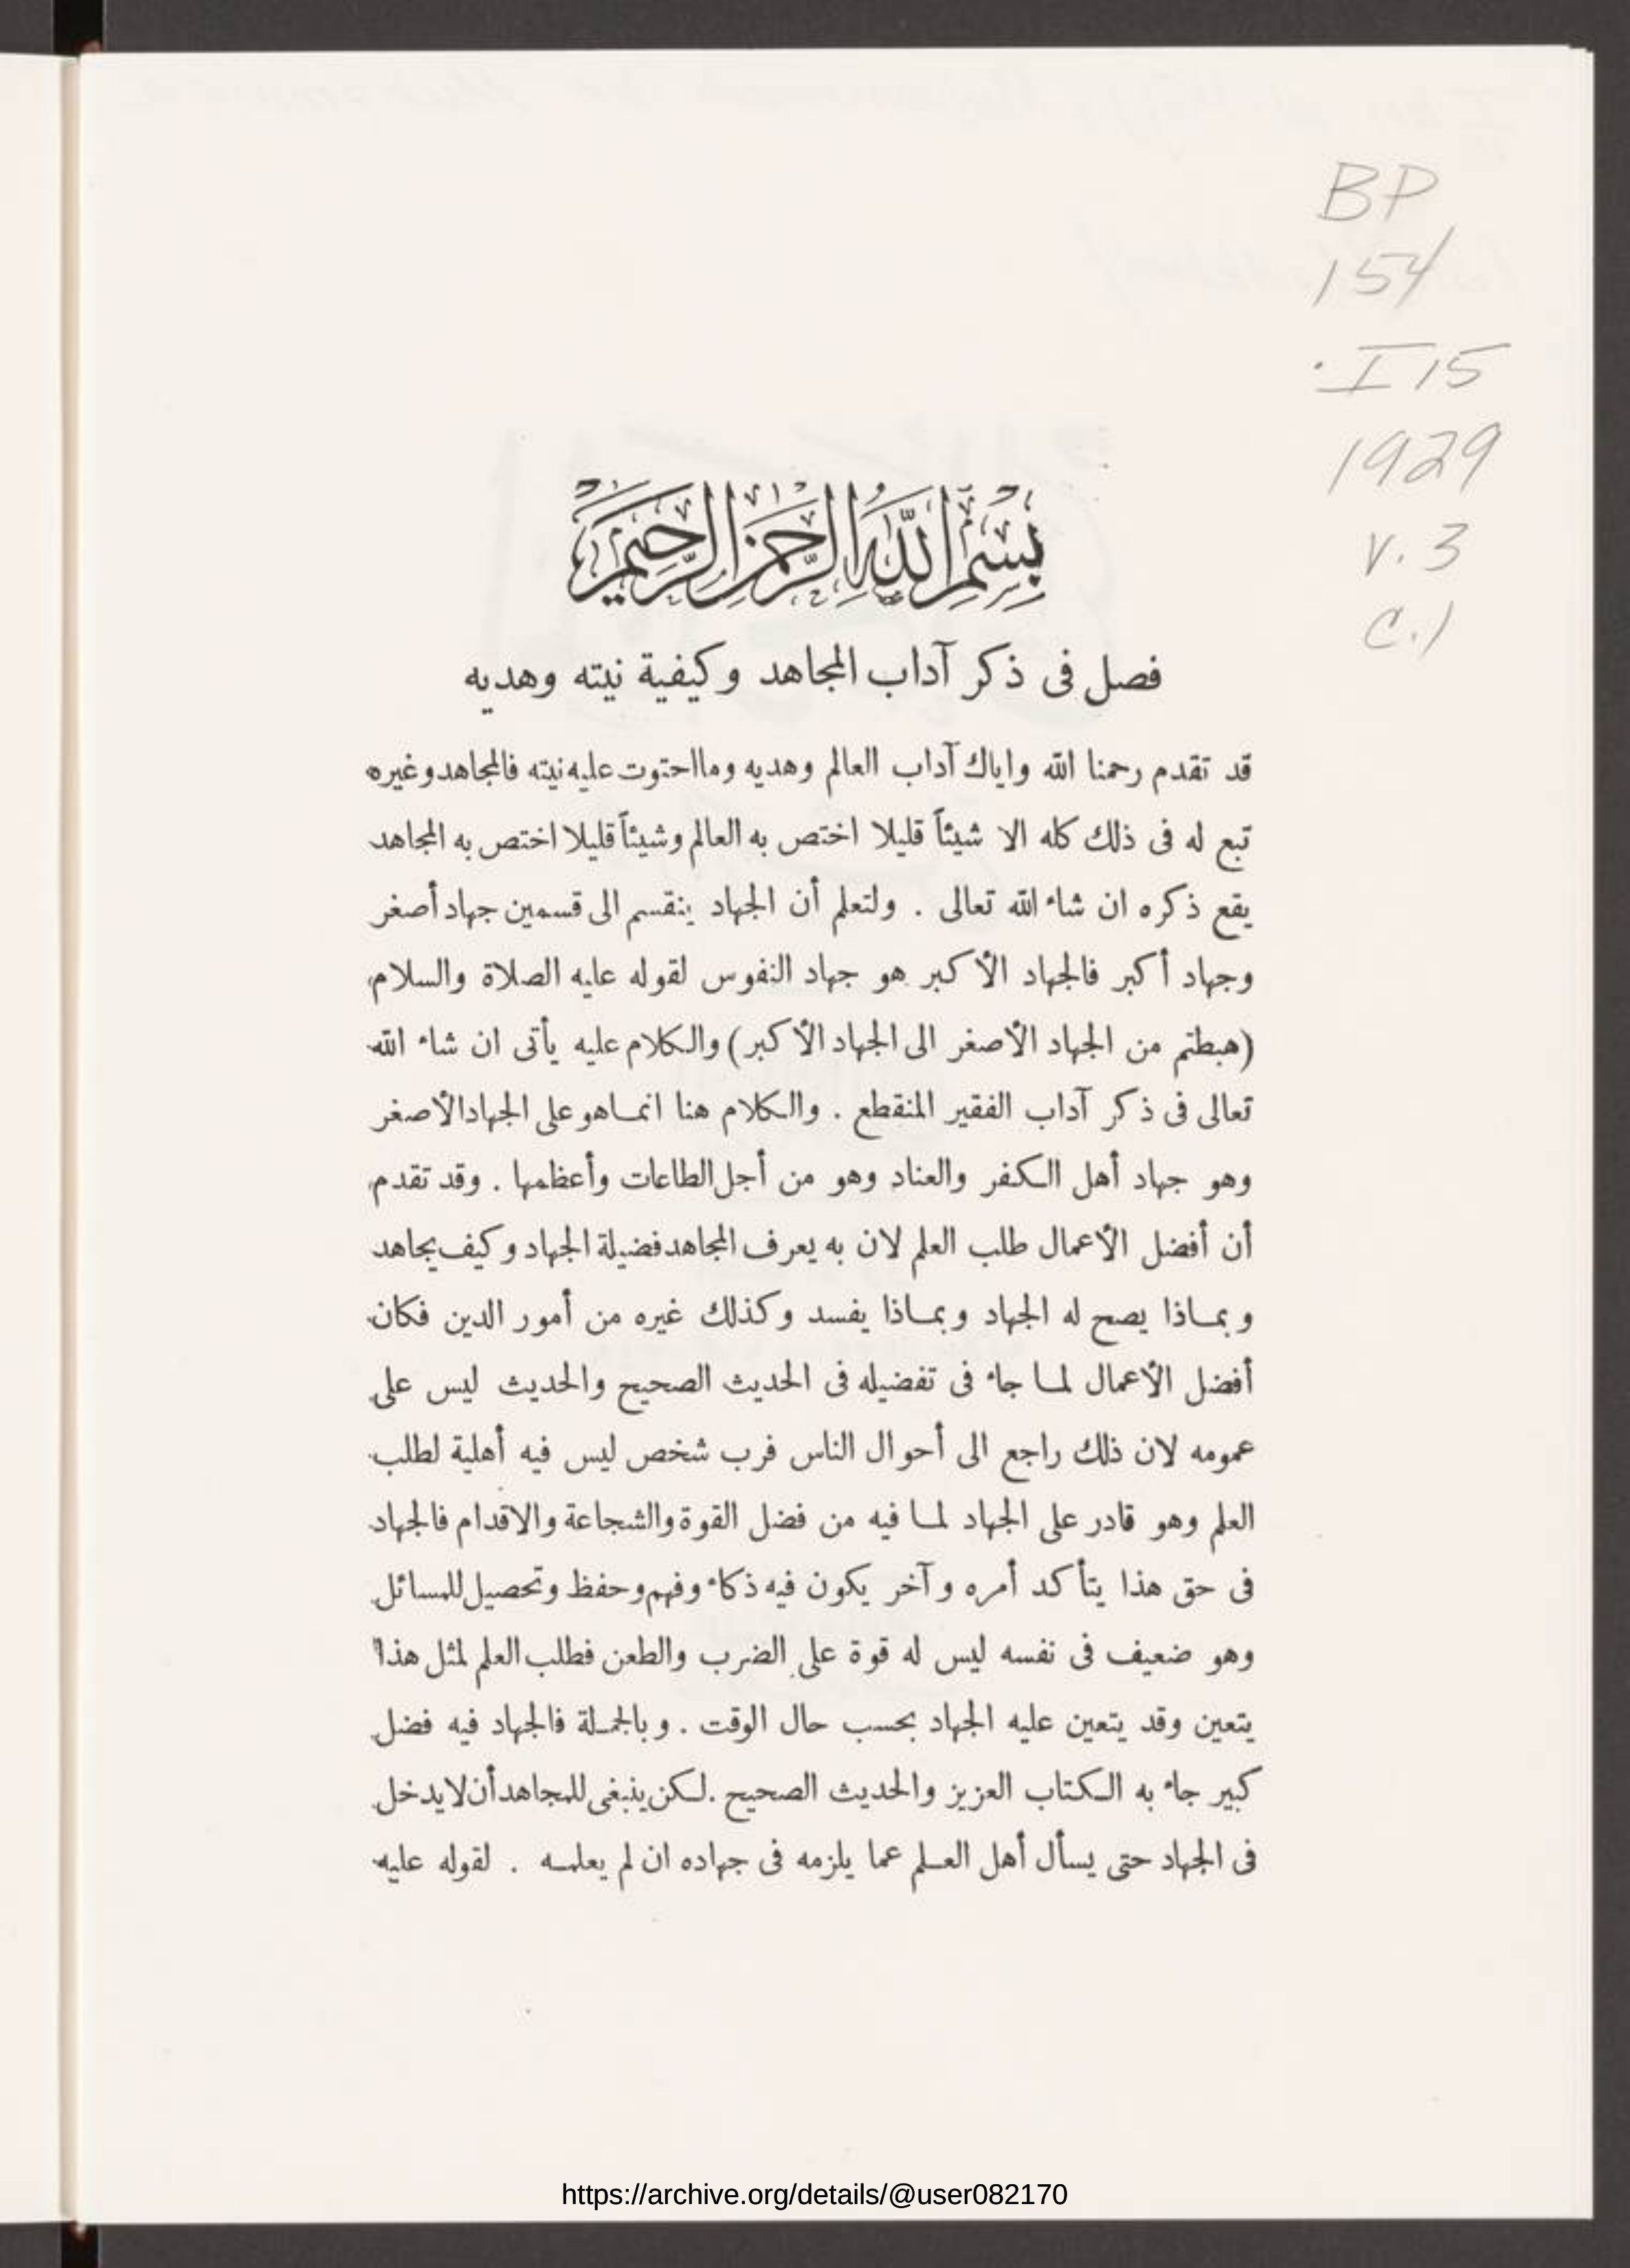 BP
154
.I15
1929
v.3
c.1
بسم الله الرحمن الرحيم
فصل فى ذكر آداب المجاهد وكيفية نيته وهديه
قد تقدم رحمنا الله واياك آداب العالم وهديه وما احتوت عليه نيته فالمجاهد وغيره
تبع له فى ذلك كله الا شيئاً قليلا اختص به العالم وشيئاً قليلا اختص به المجاهد
يقع ذكره ان شاء الله تعالى . ولتعلم أن الجهاد ينقسم الى قسمين جهاد أصغر
وجهاد أكبر فالجهاد الأكبر هو جهاد النفوس لقوله عليه الصلاة والسلام
(هبطتم من الجهاد الأصغر الى الجهاد الأكبر) والكلام عليه يأتى ان شاء الله
تعالى فى ذكر آداب الفقير المنقطع . والكلام هنا انما هو على الجهاد الأصغر
وهو جهاد أهل الكفر والعناد وهو من أجل الطاعات وأعظمها . وقد تقدم
أن أفضل الأعمال طلب العلم لان به يعرف المجاهد فضيلة الجهاد وكيف يجاهد
وبماذا يصح له الجهاد وبماذا يفسد وكذلك غيره من أمور الدين فكان
أفضل الأعمال لما جاء فى تفضيله فى الحديث الصحيح والحديث ليس على
عمومه لان ذلك راجع الى أحوال الناس فرب شخص ليس فيه أهلية لطلب
العلم وهو قادر على الجهاد لما فيه من فضل القوة والشجاعة والاقدام فالجهاد
فى حق هذا يتأكد أمره وآخر يكون فيه ذكاء وفهم وحفظ وتحصيل للمسائل
وهو ضعيف فى نفسه ليس له قوة على الضرب والطعن فطلب العلم لمثل هذا
يتعين وقد يتعين عليه الجهاد بحسب حال الوقت . وبالجملة فالجهاد فيه فضل
كبير جاء به الكتاب العزيز والحديث الصحيح . لكن ينبغى للمجاهد أن لا يدخل
فى الجهاد حتى يسأل أهل العلم عما يلزمه فى جهاده ان لم يعلمه . لقوله عليه
https://archive.org/details/@user082170